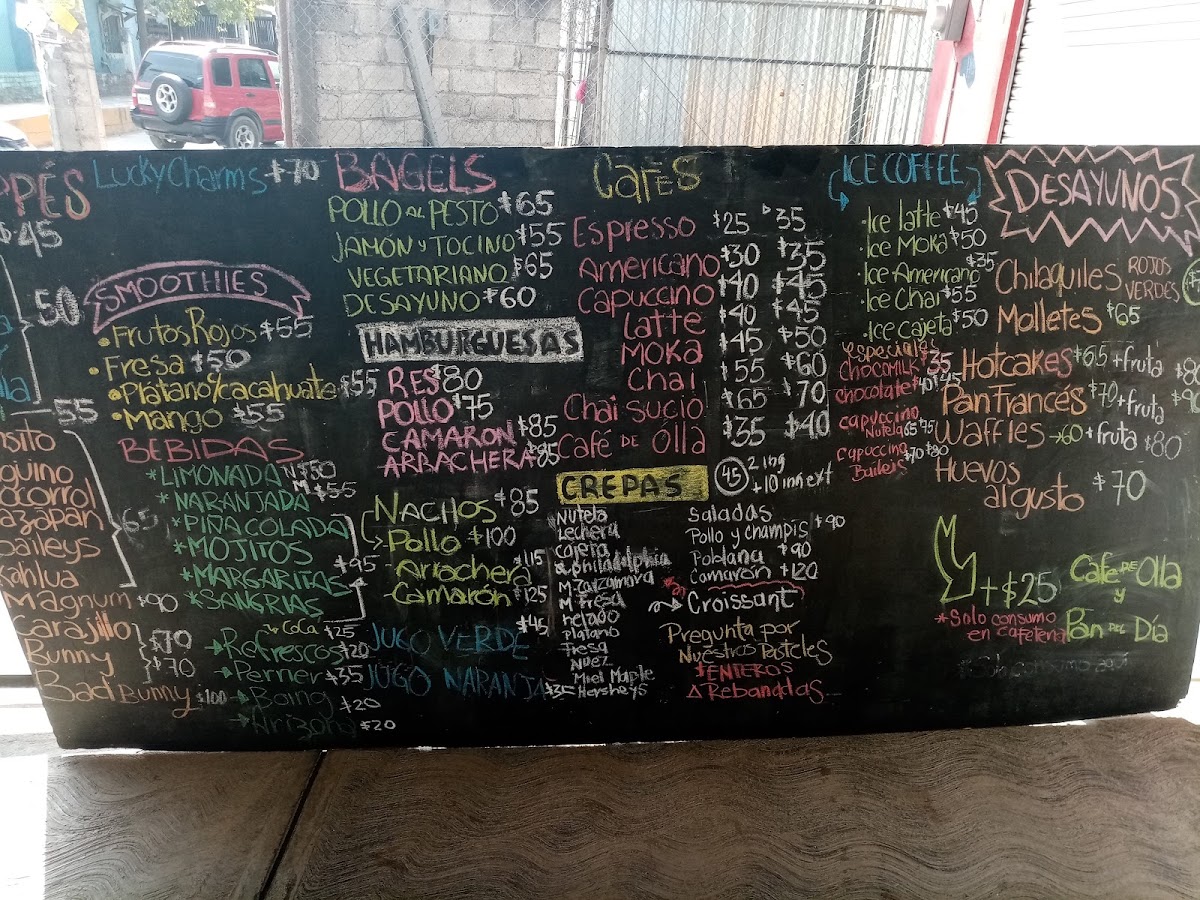 PPÉS
$45
50
55
65
Mazapán
Baileys
Kahlua
Magnum $90
Carajillo $70
Bunny $70
Bad Bunny $100
Lucky Charms $70
SMOOTHIES
• Frutos Rojos $55
• Fresa $50
• Plátano/cacahuate $55
• Mango $55
BEBIDAS
* LIMONADA N $50
* NARANJADA M $55
* PIÑA COLADA
* MOJITOS
* MARGARITAS $95
* SANGRIAS
CoCa $25
Refrescos $20
Perrier $35
Boing $20
Arizona $20
BAGELS
POLLO AL PESTO $65
JAMÓN Y TOCINO $55
VEGETARIANO $65
DESAYUNO $60
HAMBURGUESAS
RES $80
POLLO $75
CAMARON $85
ARRACHERA $85
NACHOS $85
Pollo $100
Arrachera $115
Camarón $125
JUGO VERDE $45
JUGO NARANJA $35
CAFÉS
Espresso $25 35
Americano $30 $35
Capuccino $40 $45
Latte $40 $45
Moka $45 $50
Chai $55 $60
Chai Sucio $65 $70
Café DE Olla $35 $40
CREPAS 45 2 ing
+10 ing ext
Nutela
Lechera
Cajeta
philadelphia
M. Zarzamora
M Fresa
Helado
Platano
Fresa
Nuez
Miel Maple
Hersheys
Saladas
Pollo y champis $90
Poblana $90
Camarón $120
Croissant
Pregunta por
Nuestros Pasteles
ENTEROS
Rebanadas
ICE COFFEE
• Ice latte $45
• Ice Moka $50
• Ice Americano $35
• Ice Chai $55
• Ice cajeta $50
especiales
CHOCOMILK $35
chocolate $40 $45
capuccino
Nutela 65 75
Capuccino
Baileys $70 $80
DESAYUNOS
Chilaquiles ROJOS
VERDES
Molletes $65
Hotcakes $65 + fruta $80
Pan Francés $70 + fruta $90
Waffles → 60 + fruta $80
Huevos
al gusto $70
+$25 Café DE Olla
y
Pan DEL Día
* Solo consumo
en cafeteria
* Solo consumo aquí